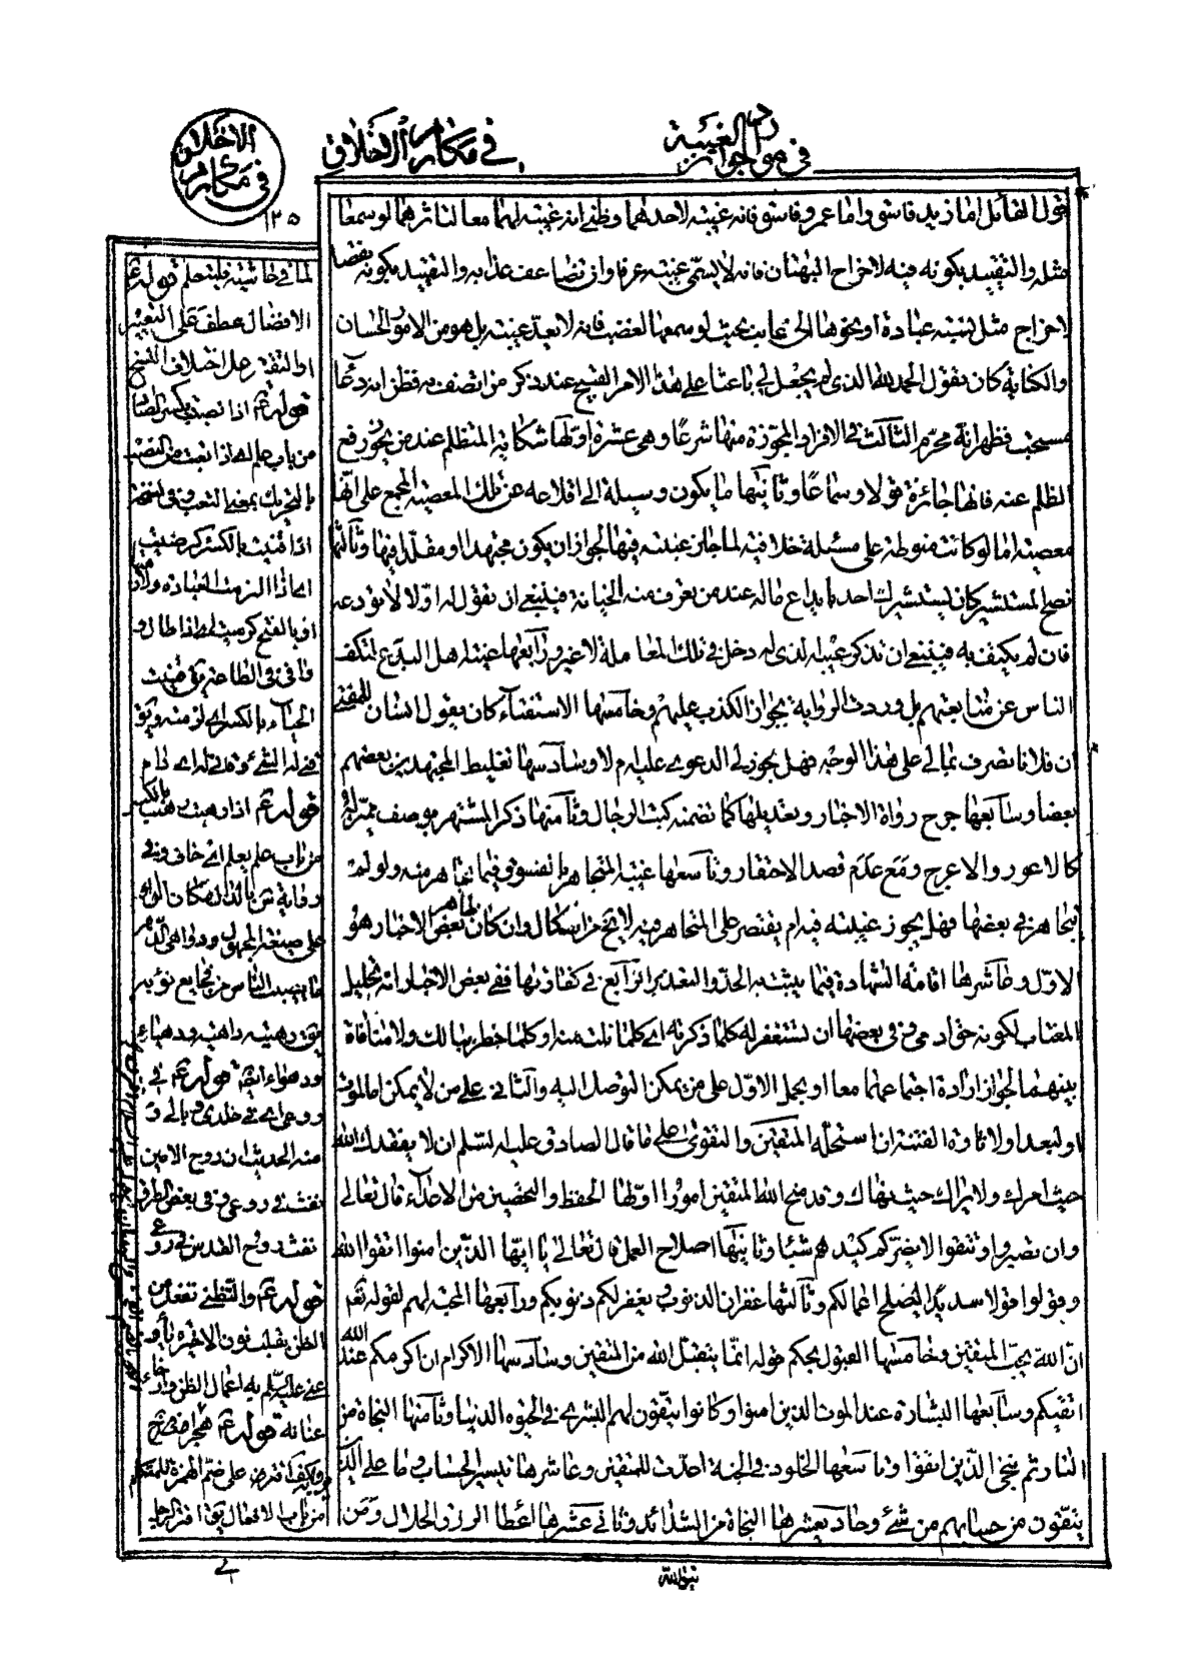 في موارد جواز الغيبة
في مكارم الاخلاق
في مكارم الاخلاق
١٢٥
قول القائل اما زيد فاسق واما عمرو فاسق فانه غيبته لاحدهما وظني انه غيبته لهما معا لتاثرهما لو سمعا
مثله والتقييد بكونه فيه لاخراج البهتان فانه لا يسمى غيبته عرفا وان تضاعف عذابه والتقييد بكونه نقصا
لاخراج مثل نسبته عبادة او نحوها الى غايب بحيث لو سمعها لغضب فانه لا يعد غيبته بل هو من الامور الحسان
والكناية كان يقول الحمد لله الذي لم يجعل لي باعثا على هذا الامر القبيح عند ذكر من اتصف به فظن انه دعا
مستحب فظهر انه محرم الثالث في الافراد المجوزة منها شرعا وهي عشرة اولها شكاية المتظلم عند من يجوز رفع
الظلم عنه فانها جائزة قولا وسماعا وثانيها ما يكون وسيلة الى اقلاعه عن تلك المعصية المجمع على انها
معصيته اما لو كانت منوطة على مسئلة خلافية لما جاز غيبته فيها لجواز ان يكون مجتهدا او مقلدا فيها وثالثها
نصح المستشير كان يستشيرك احد بايداع ماله عند من يعرف منه الخيانة فينبغي ان تقول له اولا لا تودعه
فان لم يكتف به فينبغي ان تذكر عيبه الذي له دخل في تلك المعاملة لا غير ورابعها غيبة اهل البدع لتكف
الناس عن متابعتهم بل وردت الرواية بجواز الكذب عليهم وخامسها الاستفتاء كان يقول انسان للمفتي
ان فلانا تصرف بمالي على هذا الوجه فهل يجوز لي الدعوى عليه ام لا وسادسها تغليط المجتهدين بعضهم
بعضا وسابعها جرح رواة الاخبار وتعديلها كما تضمنه كتب الرجال وثامنها ذكر المشتهر بوصف مميز له
كالاعور والاعرج ومع عدم قصد الاحتقار وتاسعها غيبته المتجاهر بالفسوق فيما تجاهر منه ولو لم
يتجاهر في بعضها فهل يجوز غيبته فيه ام يقتصر على المتجاهر منه لا يخ من اشكال وان كان ظاهر بعض الاخبار هو
الاول وعاشرها اقامة الشهادة فيما يثبت به الحد والتعذير الرابع في كفارتها ففي بعض الاخبار انه تحليل
المغتاب لكونه حق ادمي وفي بعضها ان تستغفر له كلما ذكرته اي كلما نلت منه او كلما خطر ببالك ولا منافاة
بينهما لجواز ارادة اجتماعهما معا او يحمل الاول على من يمكن التوصل اليه والثاني على من لا يمكن اما لموت
او لبعد او لاثارة الفتنة ان استحله المتقين والتقوى على ما قال الصادق عليه السلم ان لا يفقدك الله
حيث امرك ولا يراك حيث نهاك وقد منح الله المتقين امورا اولها الحفظ والتحصين من الاعداء قال تعالى
وان تصبروا وتتقوا لا يضركم كيدهم شيئا وثانيها اصلاح العمل قال تعالى يا ايها الذين امنوا اتقوا الله
وقولوا قولا سديدا يصلح اعمالكم وثالثها غفران الذنوب يغفر لكم ذنوبكم ورابعها المحبة لهم لقوله تعـ
ان الله يحب المتقين وخامسها القبول بحكم قوله انما يتقبل الله من المتقين وسادسها الاكرام ان اكرمكم عند الله
اتقيكم وسابعها البشارة عند الموت الذين امنوا وكانوا يتقون لهم البشرى في الحيوة الدنيا وثامنها النجاة من
النار ثم ننجي الذين اتقوا وتاسعها الخلود في الجنة اعدت للمتقين وعاشرها تيسير الحساب وما على الذين
يتقون من حسابهم من شئ وحاد يعشرها النجاة من الشدائد وثاني عشرها اعطاء الرزق الحلال ومن
يتق الله
لما في حاشية فليتعلم قوله ع
الافضال عطف على التعيير
او التقتر على اختلاف النسخ
قوله ع اذا نصبت بكسر الصاد
من باب علم اي اذا تعبت من النصب
بالتحريك بمعنى التعب وفي نسخة
اذا قنيت بالكسر كرضيت
اي اذا الزمت العبادة
او بالفتح كرميت
قوله ع اذا وهبت بالكسر
من باب علم يعلم اي خاف وفي
على صيغة المجهول
ما يصيب الناس من فجايع نوبه
يقو دهيته داهية ودهياء
ودهواء ايضا قوله ع في
روعي اي في خلدي وبالي و
منه الحديث ان روح الامين
نفث في روعي وفي بعض الطرق
نفث روح القدس في روعي
قوله ع والتظني تفعل من
الظن بقلب نون الاخيرة ياء و
عنى عليه السلم به اعمال الظن وارخاء
عنانه قوله ع
من باب الافعال